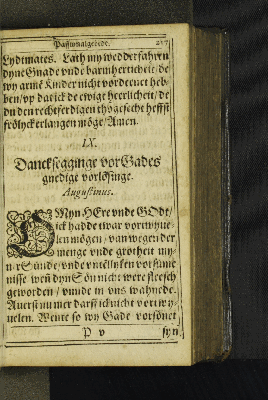 Passionalgebede. 217
Lydtmates. Lath my wedderfahrn
dyne Gnade vnde barmherticheit/ de
wy armē Kinder nicht vordenet heb-
ben/ vp dat ick de ewige heerlicheit/ de
du den rechtferdigen thogesecht heffst
frölyck erlangen möge/ Amen.
LX.
Dancksegginge vor Gades
gnedige vorlösinge.
Augustinus.
O Myn HEre vnde GOdt/
ick hadde twar vortwyue-
len mögen/ van wegen der
menge vnde grotheit my-
ner Sünde/ vnde vntellyken vorsüme
nisse wen dyn Sön nicht were fleesch
geworden/ vnnde in vns wahnede.
Auerst nummer darff ick nicht vertwy-
uelen. Wente so wy Gade vorsönet
P v syn